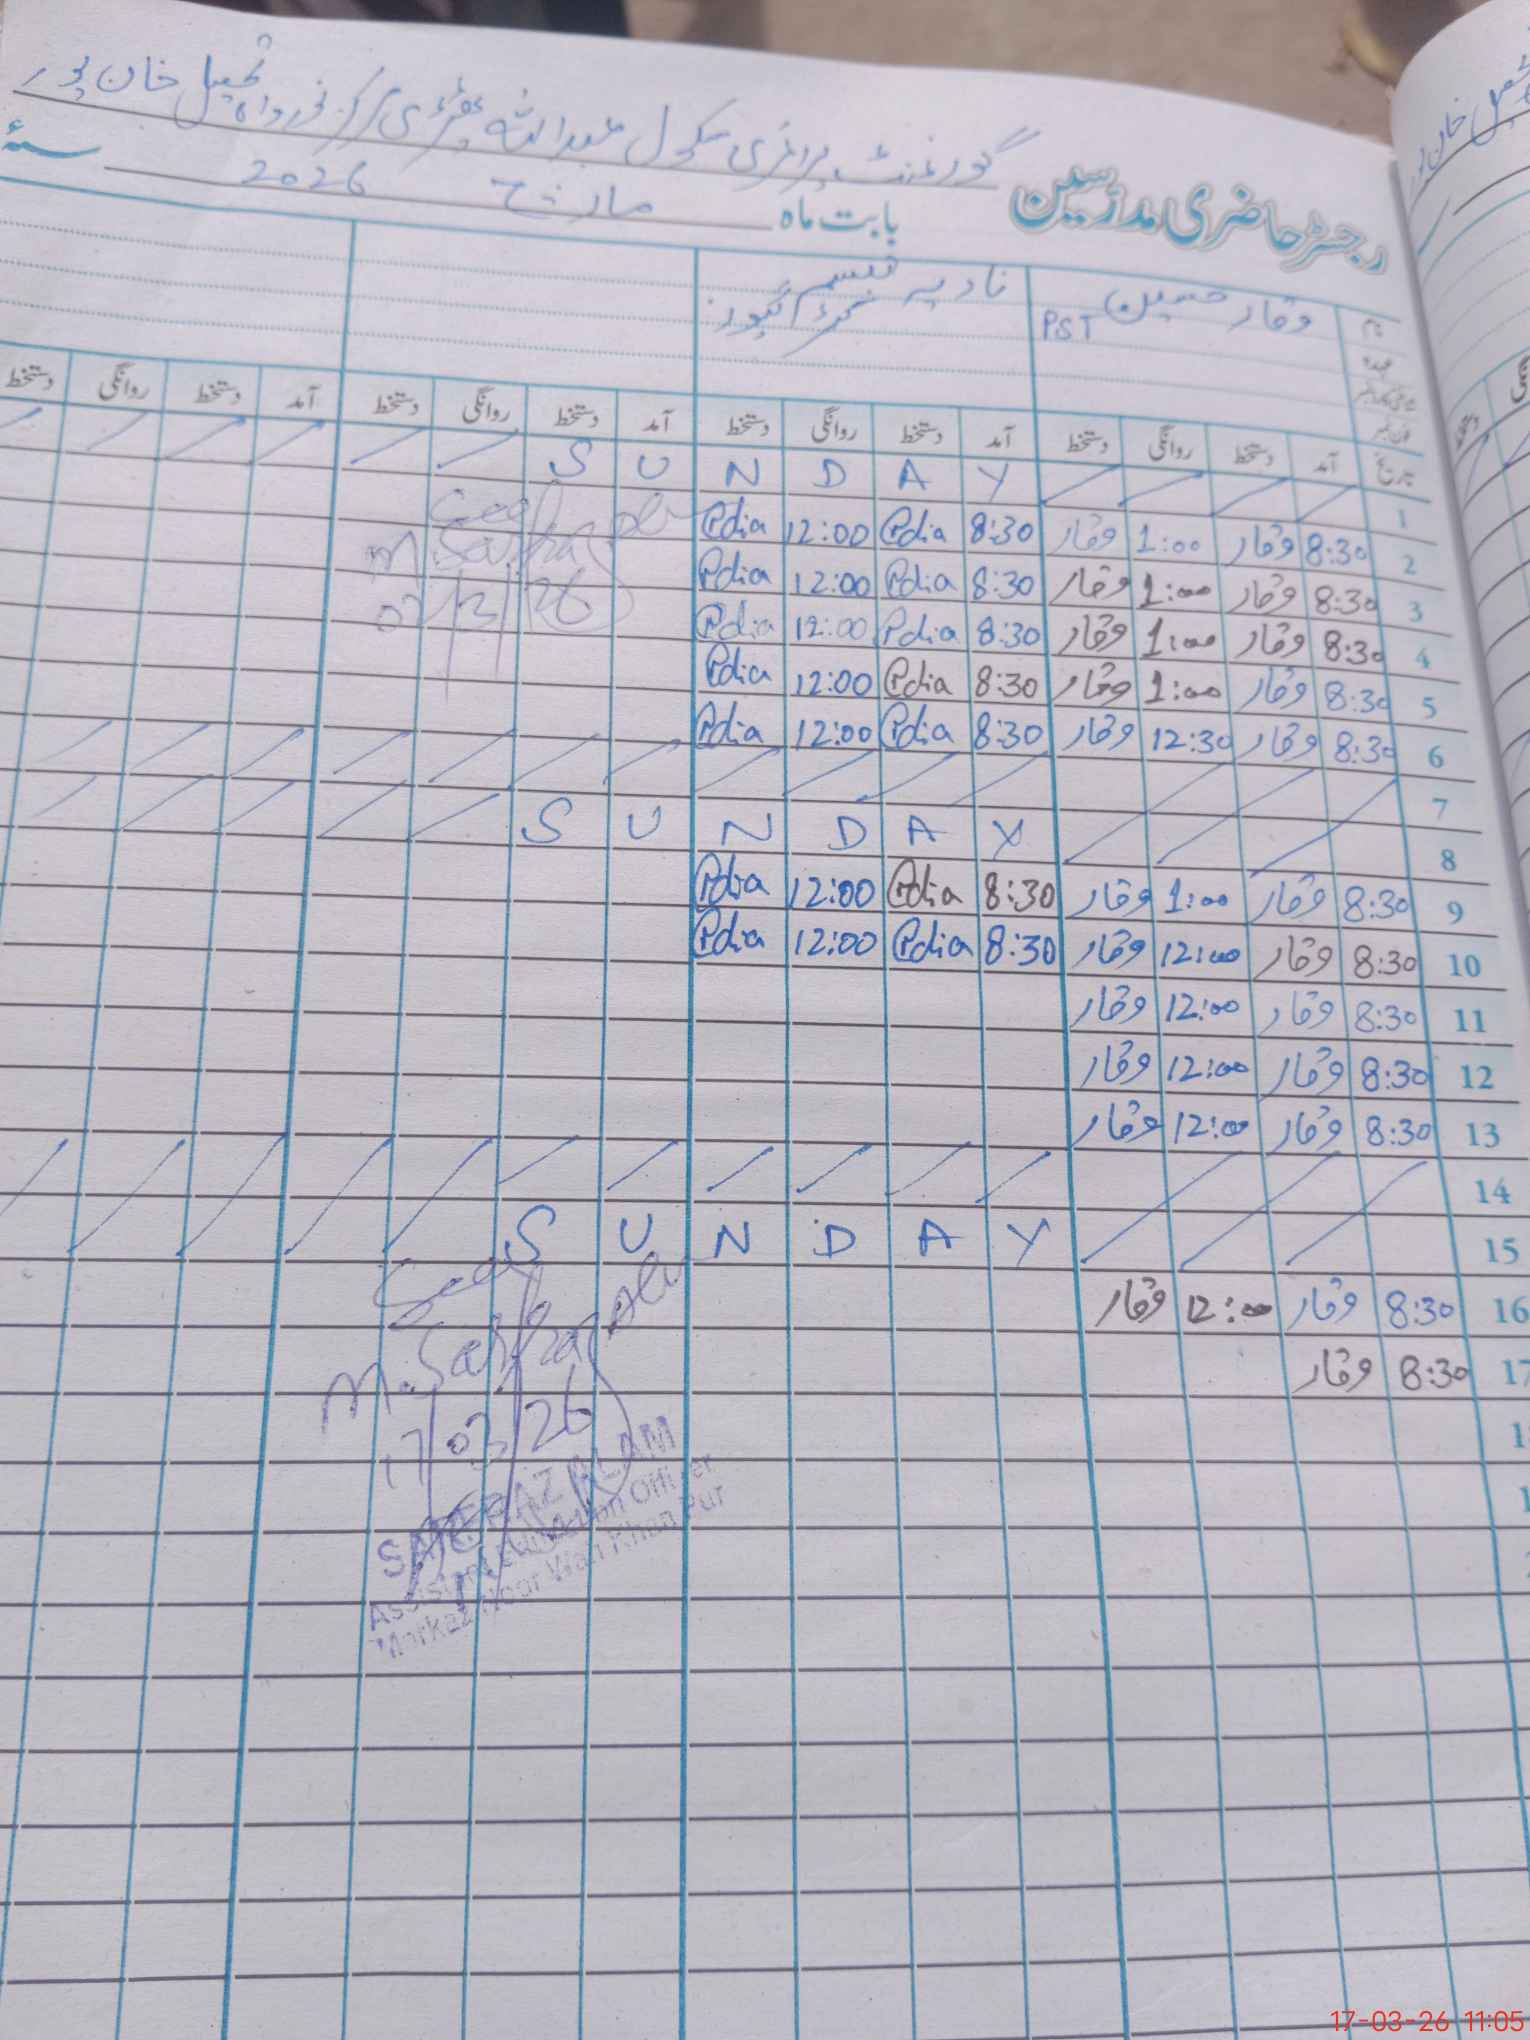 گورنمنٹ پرائمری سکول عبداللہ پھڑی مرکز نور واہ تحصیل خان پور
رجسٹر حاضری مدرسین بابت ماہ مارچ 2026 سنہ
نام وقار حسین نادیہ تبسم
عہدہ PST کیئر گیور
فون نمبر
تاریخ آمد دستخط روانگی دستخط آمد دستخط روانگی دستخط آمد دستخط روانگی دستخط آمد دستخط روانگی دستخط
1 S U N D A Y
2 8:30 وقار 1:00 وقار 8:30 Pdia 12:00 Pdia
3 8:30 وقار 1:00 وقار 8:30 Pdia 12:00 Pdia
4 8:30 وقار 1:00 وقار 8:30 Pdia 12:00 Pdia
5 8:30 وقار 1:00 وقار 8:30 Pdia 12:00 Pdia
6 8:30 وقار 12:30 وقار 8:30 Pdia 12:00 Pdia
7
8 S U N D A Y
9 8:30 وقار 1:00 وقار 8:30 Pdia 12:00 Pdia
10 8:30 وقار 12:00 وقار 8:30 Pdia 12:00 Pdia
11 8:30 وقار 12:00 وقار
12 8:30 وقار 12:00 وقار
13 8:30 وقار 12:00 وقار
14
15 S U N D A Y
16 8:30 وقار 12:00 وقار
17 8:30 وقار
M. Sarfraz
17/03/26
SARFRAZ ALAM
Assistant Education Officer
Markaz Noor Wah Khan Pur
17-03-26 11:05